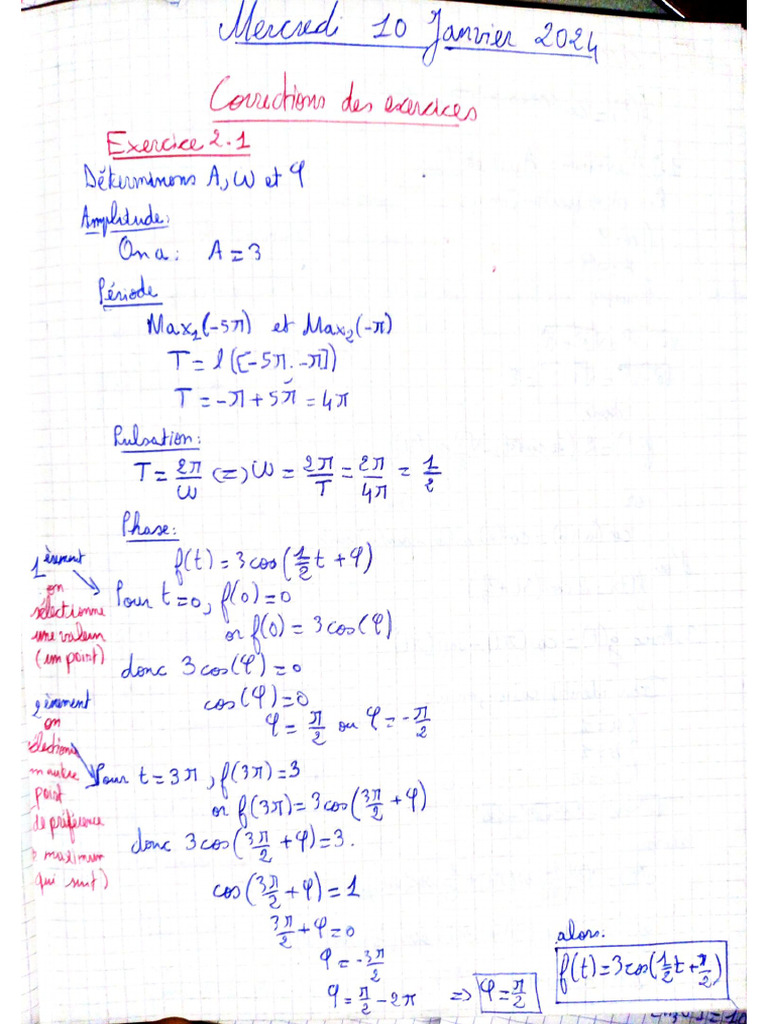 Mercredi 10 Janvier 2024
Corrections des exercices
Exercice 2.1
Déterminons A, ω et φ
Amplitude:
On a: A = 3
Période
Max₁(-5π) et Max₂(-π)
T = l([-5π. -π])
T = -π + 5π = 4π
Pulsation:
T = 2π/ω (=) ω = 2π/T = 2π/4π = 1/2
Phase:
f(t) = 3cos(1/2 t + φ)
1èrement
on
sélectionne
une valeur
(un point)
Pour t=0, f(0)=0
or f(0) = 3cos(φ)
donc 3cos(φ)=0
cos(φ)=0
φ = π/2 ou φ = -π/2
2èmement
on
sélectionne
un autre
point
de préférence
maximum
qui suit)
Pour t = 3π, f(3π)=3
or f(3π) = 3cos(3π/2 + φ)
donc 3cos(3π/2 + φ) = 3.
cos(3π/2 + φ) = 1
3π/2 + φ = 0
φ = -3π/2
φ = π/2 - 2π => φ = π/2
alors:
f(t) = 3cos(1/2 t + π/2)